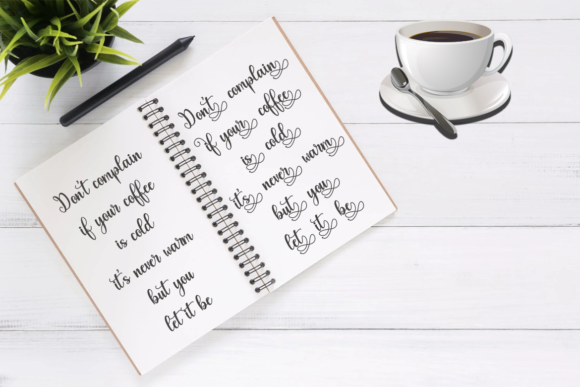 Don't complain
if your coffee
is cold
it's never warm
but you
let it be
Don't complain
if your coffee
is cold
it's never warm
but you
let it be